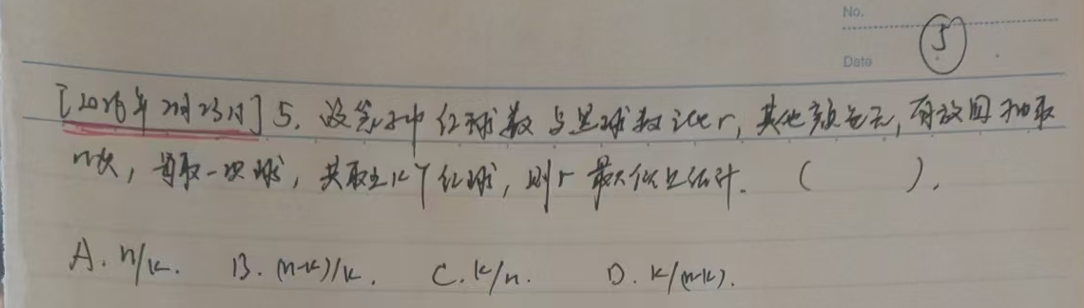 No.
5
Date
[2026年2月23日] 5. 设袋中红球数与黑球数比r, 其他颜色无, 有放回抽取
n次, 每取一次球, 共取出k个红球, 则r最大似然估计. ( ).
A. n/k. B. (n-k)/k. C. k/n. D. k/(n-k).